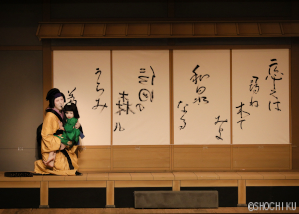 恋しくは
尋ね
来て
みよ
和泉
なる
信田の
森の
うらみ
©SHOCHIKU